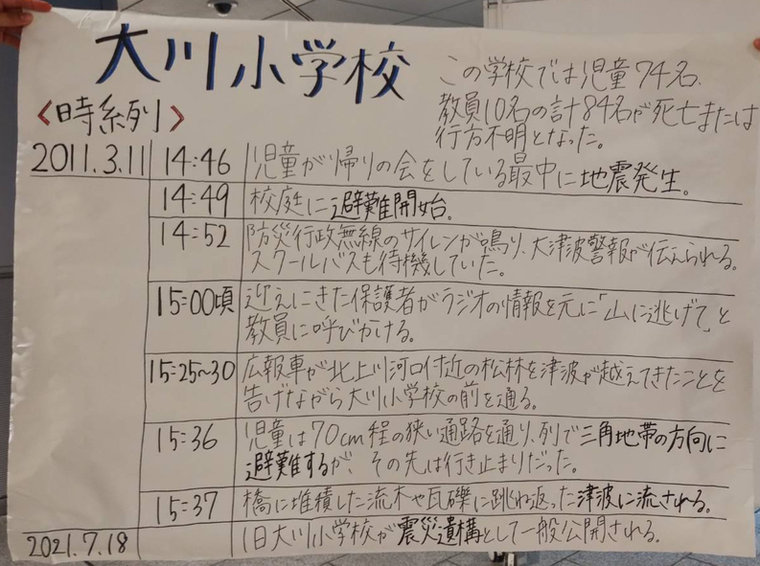 大川小学校
この学校では児童74名、
教員10名の計84名が死亡または
行方不明となった。
<時系列>
2011.3.11 14:46 児童が帰りの会をしている最中に地震発生。
14:49 校庭に避難開始。
14:52 防災行政無線のサイレンが鳴り、大津波警報が伝えられる。
スクールバスも待機していた。
15:00頃 迎えにきた保護者がラジオの情報を元に「山に逃げて」と
教員に呼びかける。
15:25~30 広報車が北上川河口付近の松林を津波が越えてきたことを
告げながら大川小学校の前を通る。
15:36 児童は70cm程の狭い通路を通り、列で三角地帯の方向に
避難するが、その先は行き止まりだった。
15:37 橋に堆積した流木や瓦礫に跳ね返った津波に流される。
2021.7.18 旧大川小学校が震災遺構として一般公開される。